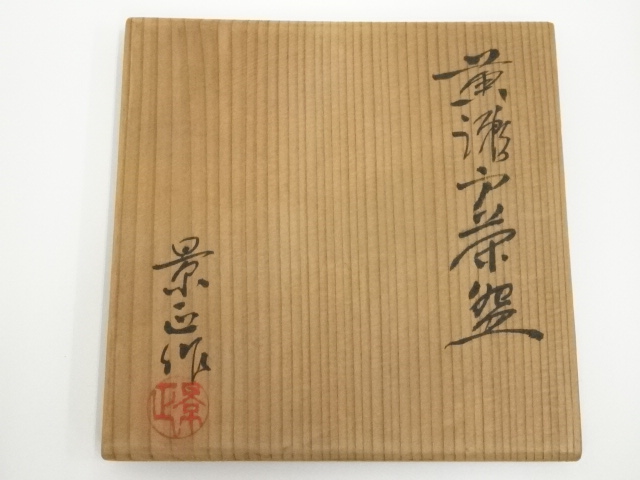 黄瀬戸茶盌
景正作
景正